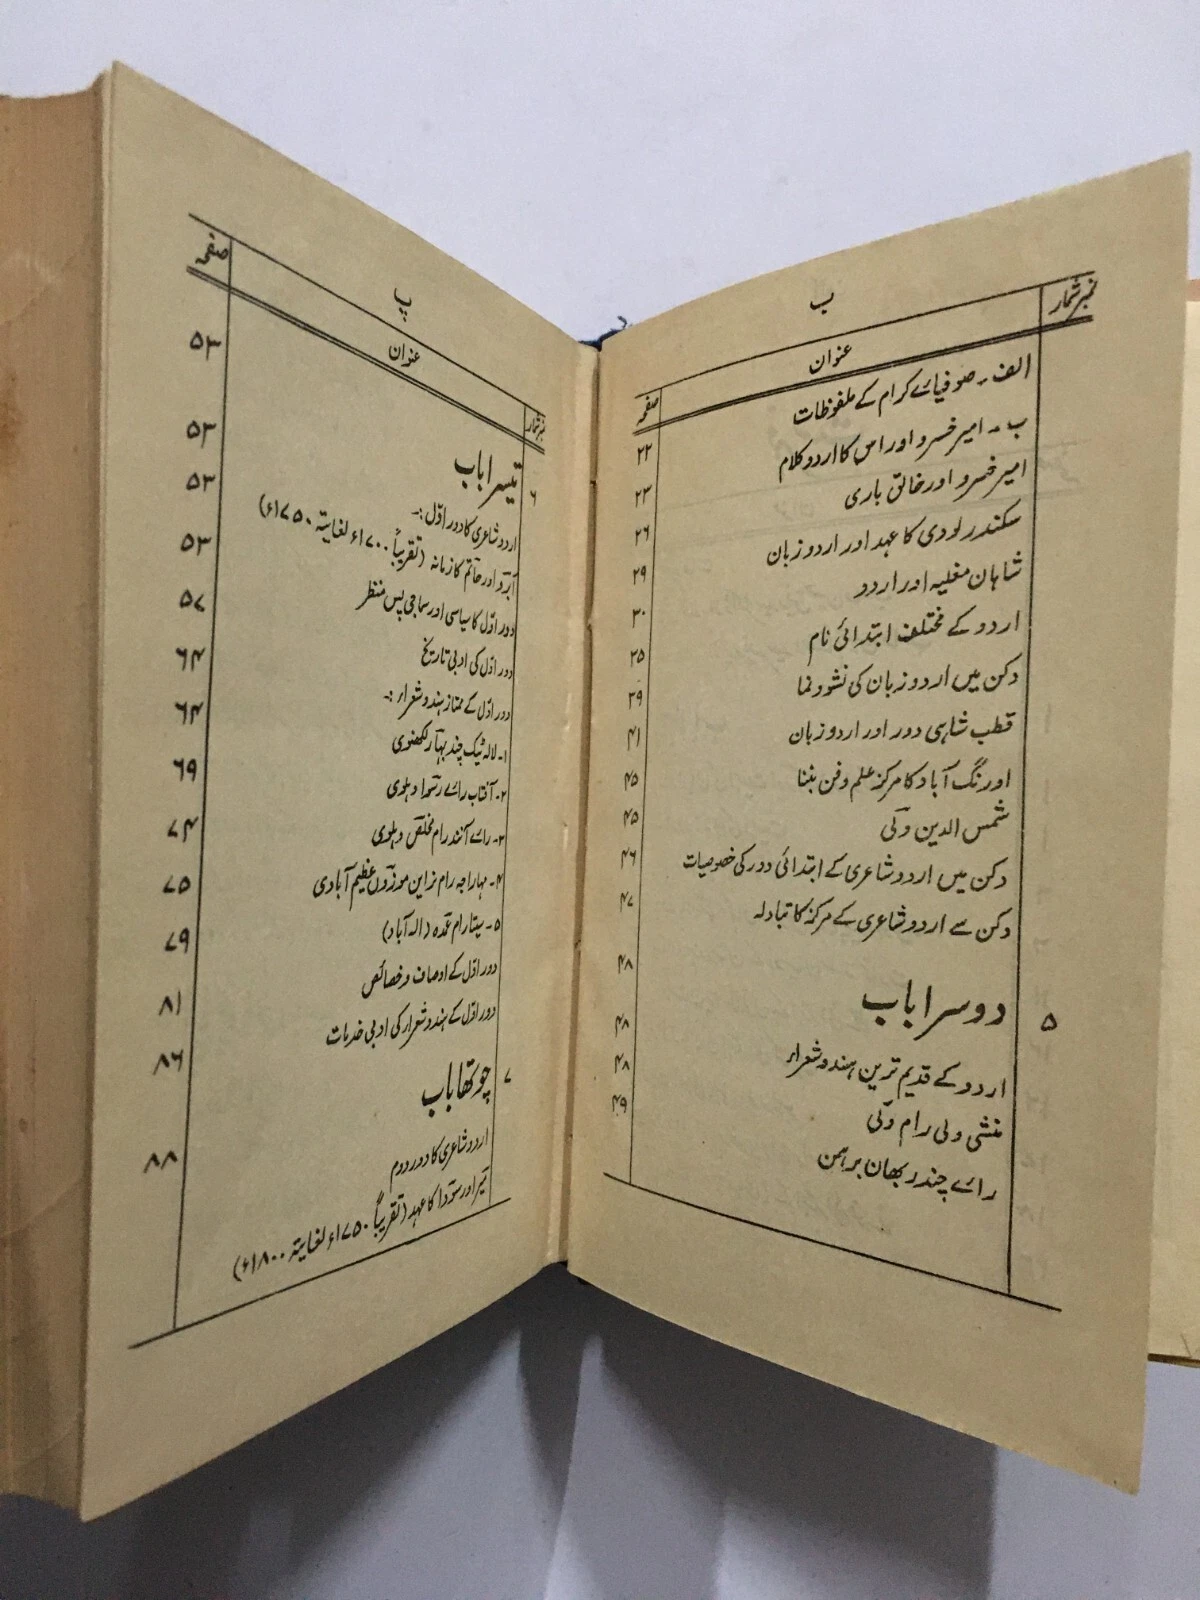 ب
نمبر شمار عنوان صفحہ
الف ۔ صوفیائے کرام کے ملفوظات ۲۲
ب ۔ امیر خسرو اور اس کا اردو کلام ۲۳
امیر خسرو اور خالق باری ۲۶
سکندر لودی کا عہد اور اردو زبان ۲۹
شاہان مغلیہ اور اردو ۳۰
اردو کے مختلف ابتدائی نام ۳۵
دکن میں اردو زبان کی نشوونما ۳۹
قطب شاہی دور اور اردو زبان ۴۱
اورنگ آباد کا مرکز علم و فن بننا ۴۵
شمس الدین ولی ۴۵
دکن میں اردو شاعری کے ابتدائی دور کی خصوصیات ۴۶
دکن سے اردو شاعری کے مرکز کا تبادلہ ۴۷
۵ دوسرا باب ۴۸
اردو کے قدیم ترین ہندو شعراء ۴۸
منشی ولی رام ولی ۴۸
رائے چندر بھان برہمن ۴۹
پ
نمبر شمار عنوان صفحہ
۶ تیسرا باب ۵۳
اردو شاعری کا دور اوّل :۔ ۵۳
آبرو اور حاتم کا زمانہ (تقریباً ۱۷۰۰ء لغایتہ ۱۷۵۰ء) ۵۳
دور اوّل کا سیاسی اور سماجی پس منظر ۵۳
دور اوّل کی ادبی تاریخ ۵۷
دور اوّل کے ممتاز ہندو شعراء :۔ ۶۴
۱۔ لالہ ٹیک چند بہار لکھنوی ۶۴
۲۔ آفتاب رائے رسوا دہلوی ۶۹
۳۔ رائے آنند رام مخلص دہلوی ۷۴
۴۔ مہاراجہ رام نراین موزوں عظیم آبادی ۷۵
۵۔ سیتا رام عمدہ (الہ آباد) ۷۹
دور اوّل کے اوصاف و خصائص ۸۱
دور اوّل کے ہندو شعراء کی ادبی خدمات ۸۶
۷ چوتھا باب ۸۸
اردو شاعری کا دور دوم
میر اور سودا کا عہد (تقریباً ۱۷۵۰ء لغایتہ ۱۸۰۰ء)